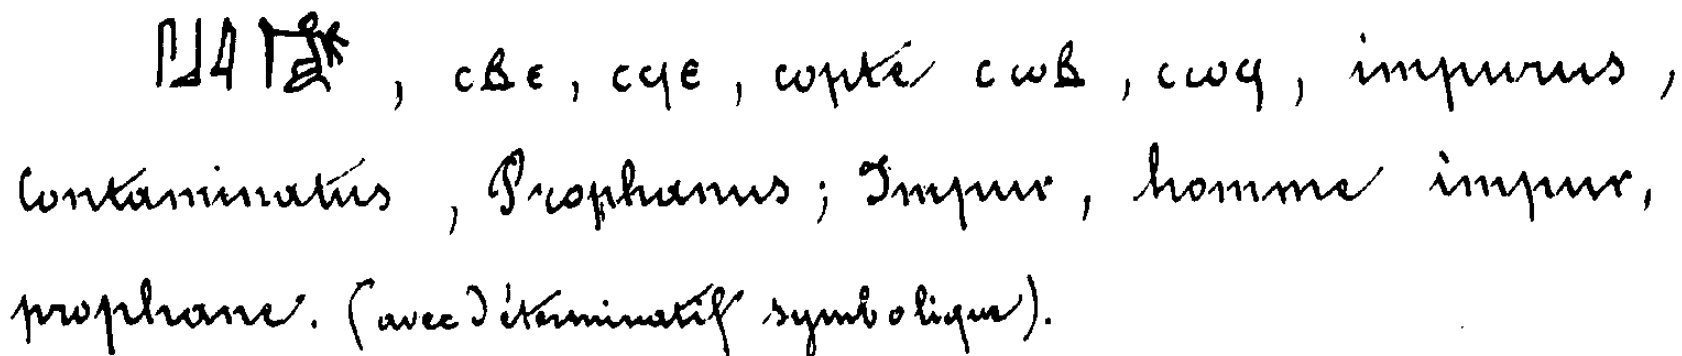 𓋴𓃀𓇋 , ⲥⲃⲉ , ⲥϥⲉ , copte ⲥⲱⲃ , ⲥⲱϥ , impurus ,
Contaminatus , Prophanus ; Impur , homme impur ,
prophane. (avec déterminatif symbolique).